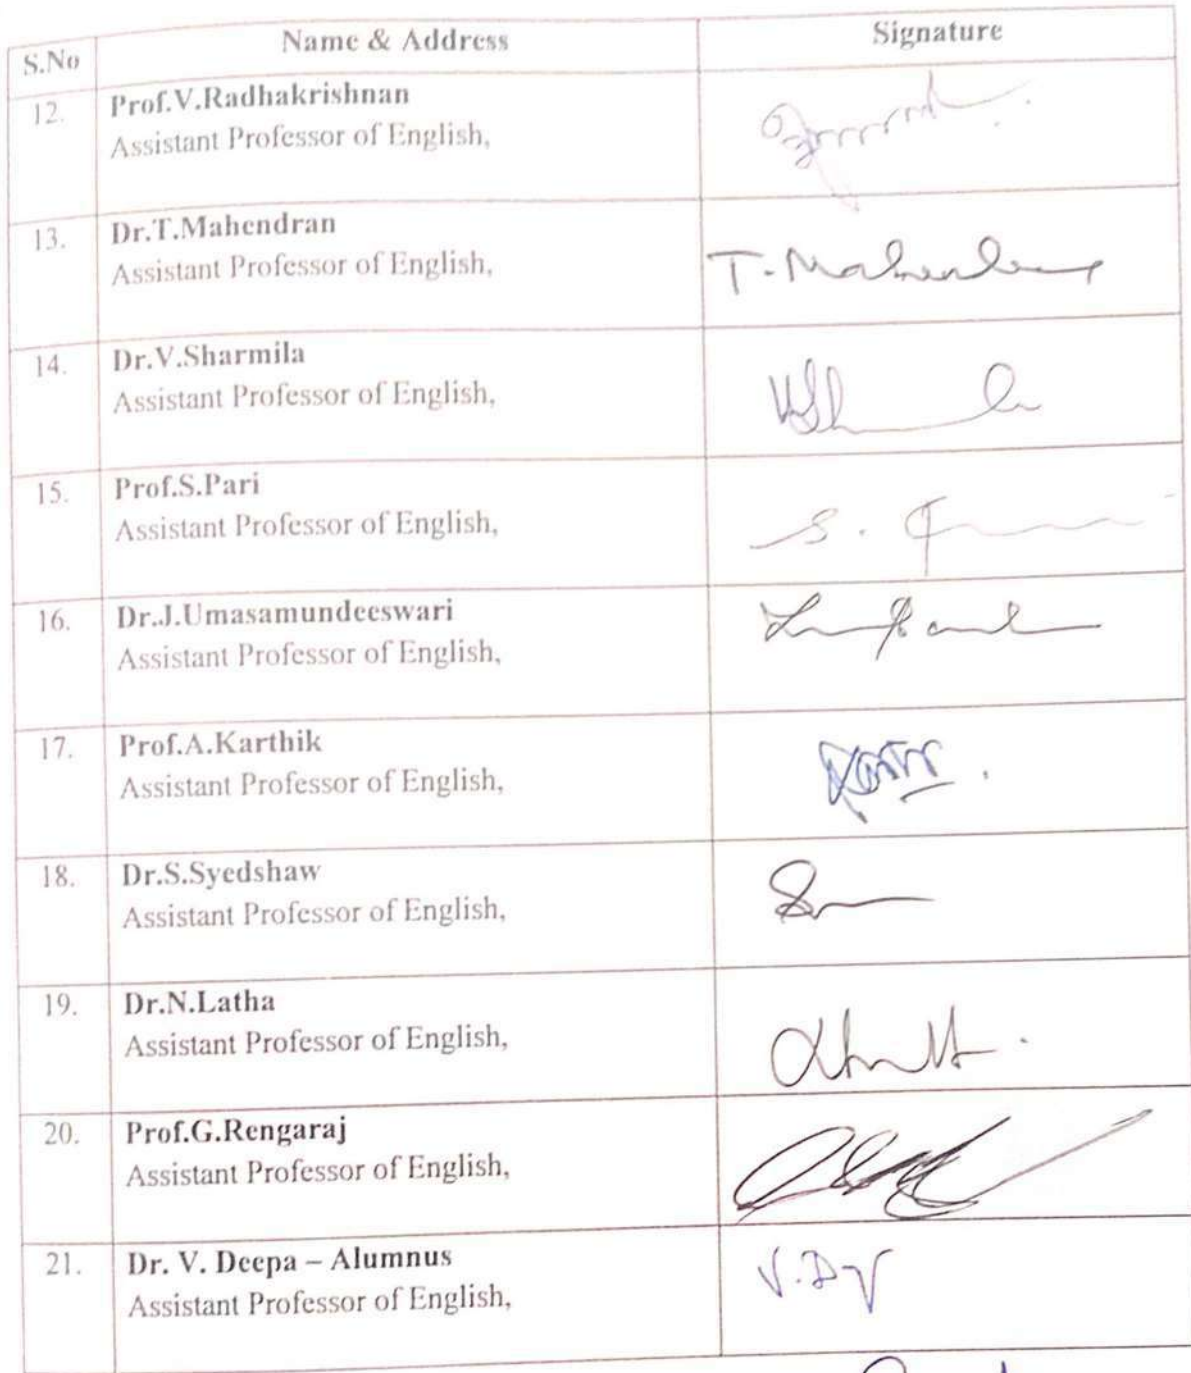 S.No Name & Address Signature
12. Prof.V.Radhakrishnan
Assistant Professor of English,
13. Dr.T.Mahendran
Assistant Professor of English,
T. Mahendran
14. Dr.V.Sharmila
Assistant Professor of English,
15. Prof.S.Pari
Assistant Professor of English,
16. Dr.J.Umasamundeeswari
Assistant Professor of English,
17. Prof.A.Karthik
Assistant Professor of English,
18. Dr.S.Syedshaw
Assistant Professor of English,
19. Dr.N.Latha
Assistant Professor of English,
20. Prof.G.Rengaraj
Assistant Professor of English,
21. Dr. V. Deepa – Alumnus
Assistant Professor of English,